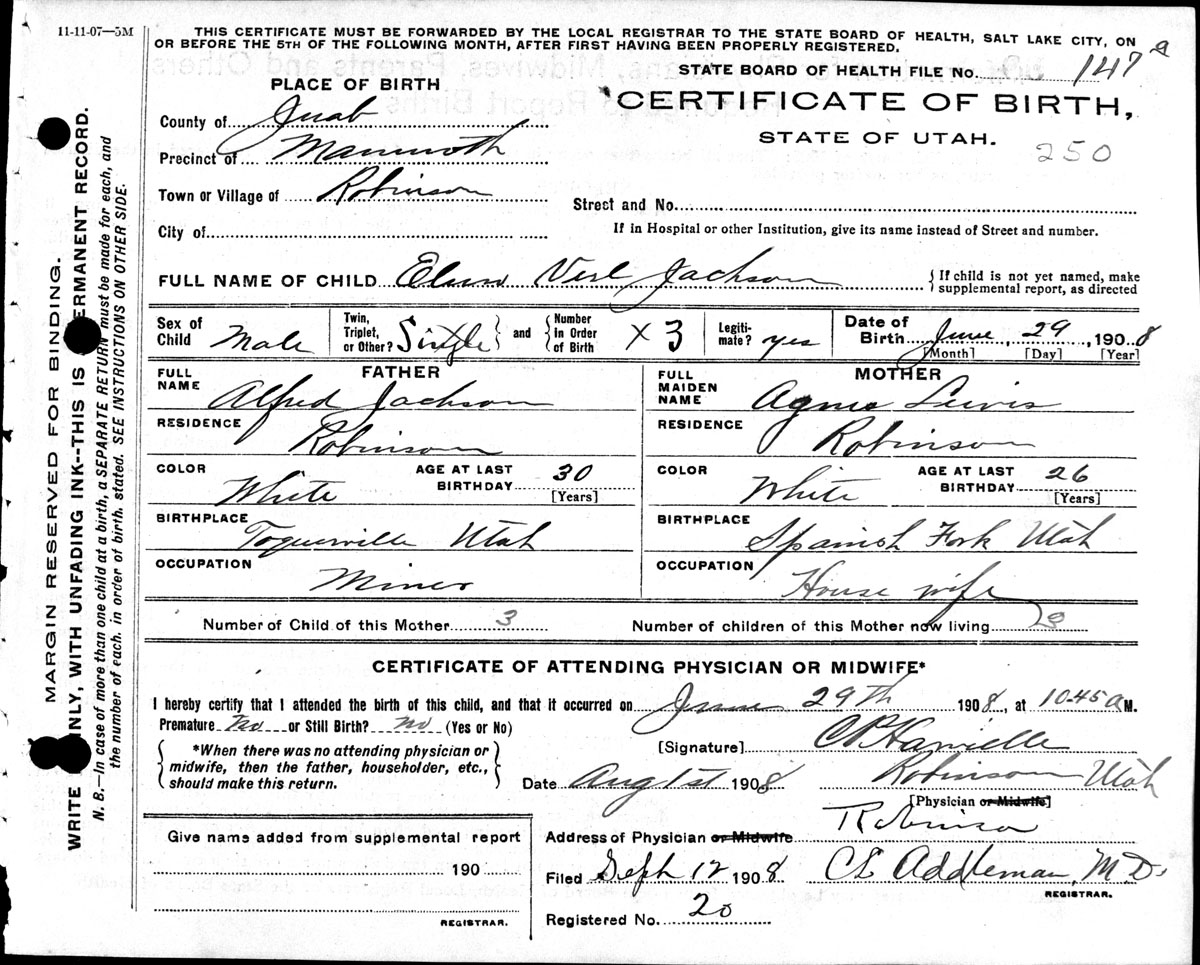 11-11-07—5M
THIS CERTIFICATE MUST BE FORWARDED BY THE LOCAL REGISTRAR TO THE STATE BOARD OF HEALTH, SALT LAKE CITY, ON
OR BEFORE THE 5TH OF THE FOLLOWING MONTH, AFTER FIRST HAVING BEEN PROPERLY REGISTERED.
STATE BOARD OF HEALTH FILE No. 147
PLACE OF BIRTH
CERTIFICATE OF BIRTH,
STATE OF UTAH.
250
County of Juab
Precinct of Mammoth
Town or Village of Robinson
Street and No.
City of
If in Hospital or other Institution, give its name instead of Street and number.
FULL NAME OF CHILD Verl Jackson
{If child is not yet named, make
supplemental report, as directed
Sex of Child Male
Twin, Triplet, or Other? Single } and { Number in Order of Birth X 3
Legitimate? yes
Date of Birth June, 29, 1908
[Month] [Day] [Year]
FATHER
MOTHER
FULL NAME Alfred Jackson
FULL MAIDEN NAME Agnes Lewis
RESIDENCE Robinson
RESIDENCE Robinson
COLOR White AGE AT LAST BIRTHDAY 30 [Years]
COLOR White AGE AT LAST BIRTHDAY 26 [Years]
BIRTHPLACE Toquerville Utah
BIRTHPLACE Spanish Fork Utah
OCCUPATION Miner
OCCUPATION House wife
Number of Child of this Mother 3
Number of children of this Mother now living 3
CERTIFICATE OF ATTENDING PHYSICIAN OR MIDWIFE*
I hereby certify that I attended the birth of this child, and that it occurred on June 29th 1908, at 10.45 a M.
Premature no or Still Birth? no (Yes or No)
{ *When there was no attending physician or
midwife, then the father, householder, etc.,
should make this return. }
[Signature]
Date Aug 1st 1908
Robinson Utah
[Physician or Midwife]
Address of Physician or Midwife Robinson
Filed Sept 12 1908 Addleman, M.D.
REGISTRAR.
Registered No. 20
Give name added from supplemental report
190
REGISTRAR.
MARGIN RESERVED FOR BINDING.
WRITE INLY, WITH UNFADING INK--THIS IS ERMANENT RECORD.
N. B.—In case of more than one child at a birth, a SEPARATE RETURN must be made for each, and
the number of each, in order of birth, stated. SEE INSTRUCTIONS ON OTHER SIDE.